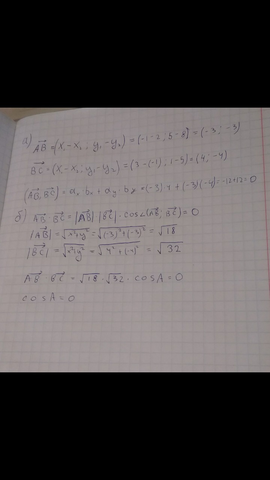 а)
AB⃗ = (x₁-x₂, y₁-y₂) = (-1-2; 5-8) = (-3; -3)
BC⃗ = (x₁-x₂, y₁-y₂) = (3-(-1); 1-5) = (4, -4)
(AB⃗, BC⃗) = aₓ bₓ + a_y · b_y = (-3)
+ (-3)(-4) = -12+12=0
б) AB⃗ BC⃗ = |AB⃗| |BC⃗| · cos∠(AB⃗; BC⃗) = 0
|AB⃗| = √x²+y² = √(-3)²+(-3)² = √18
|BC⃗| = √x²+y² = √4²+(-4)² = √32
AB⃗ BC⃗ = √18 · √32 · cos A = 0
cos A = 0